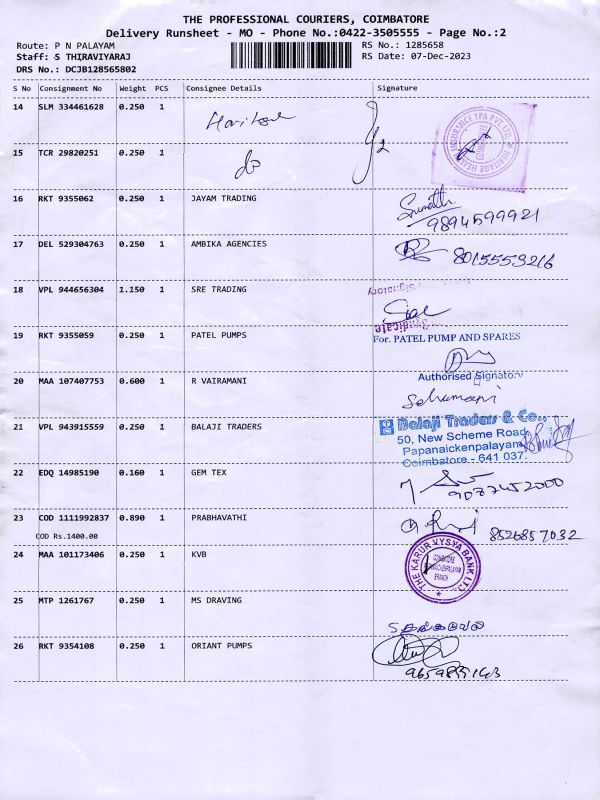 THE PROFESSIONAL COURIERS, COIMBATORE
Delivery Runsheet - MO - Phone No.:0422-3505555 - Page No.:2
Route: P N PALAYAM
Staff: S THIRAVIYARAJ
DRS No.: DCJB128565802
RS No.: 1285658
RS Date: 07-Dec-2023
S No Consignment No Weight PCS Consignee Details Signature
14 SLM 334461628 0.250 1
HERITAGE HEALTH INSURANCE TPA PVT. LTD.
15 TCR 29820251 0.250 1 do
16 RKT 9355062 0.250 1 JAYAM TRADING
9894599921
17 DEL 529304763 0.250 1 AMBIKA AGENCIES 8015553216
18 VPL 944656304 1.150 1 SRE TRADING
Signatory
Syndicate
19 RKT 9355059 0.250 1 PATEL PUMPS For. PATEL PUMP AND SPARES
Authorised Signatory
20 MAA 107407753 0.600 1 R VAIRAMANI
21 VPL 943915559 0.250 1 BALAJI TRADERS
Balaji Traders & Co.,
50, New Scheme Road,
Papanaickenpalayam,
Coimbatore - 641 037.
22 EDQ 14985190 0.160 1 GEM TEX
9077452000
23 COD 1111992837 0.890 1 PRABHAVATHI 8526857032
COD Rs.1400.00
24 MAA 101173406 0.250 1 KVB
THE KARUR VYSYA BANK LTD.
COIMBATORE
PAPANAICKENPALAYAM
BRANCH
25 MTP 1261767 0.250 1 MS DRAVING
26 RKT 9354108 0.250 1 ORIANT PUMPS